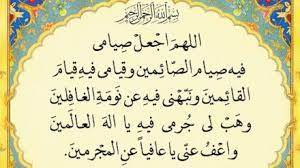 بسم الله الرحمن الرحیم
اللهم اجعل صیامی
فیه صیام الصّائمین وقیامی فیه قیام
القائمین ونبّهنی فیه عن نومة الغافلین
وهب لی جرمی فیه یا اله العالمین
واعف عنّی یا عافیاً عن المجرمین.